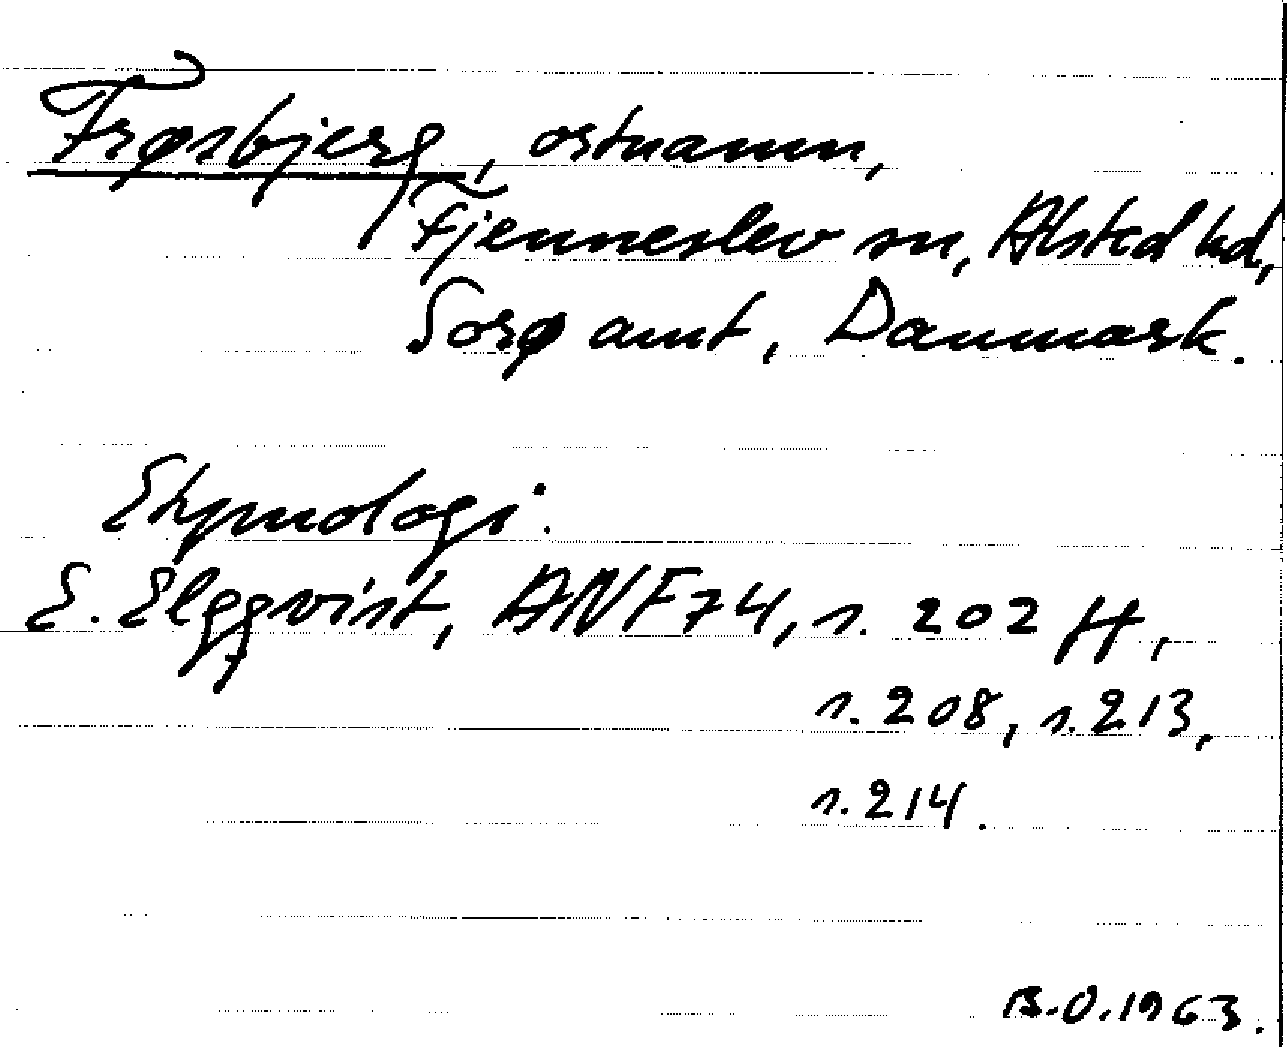 Frøsbjerg, ortnamn,
Fjenneslev sn, Alsted hd,
Sorø amt, Danmark.
Etymologi:
E. Elgqvist, ANF 74, s. 202 ff,
s. 208, s. 213,
s. 214.
B.O. 1963.